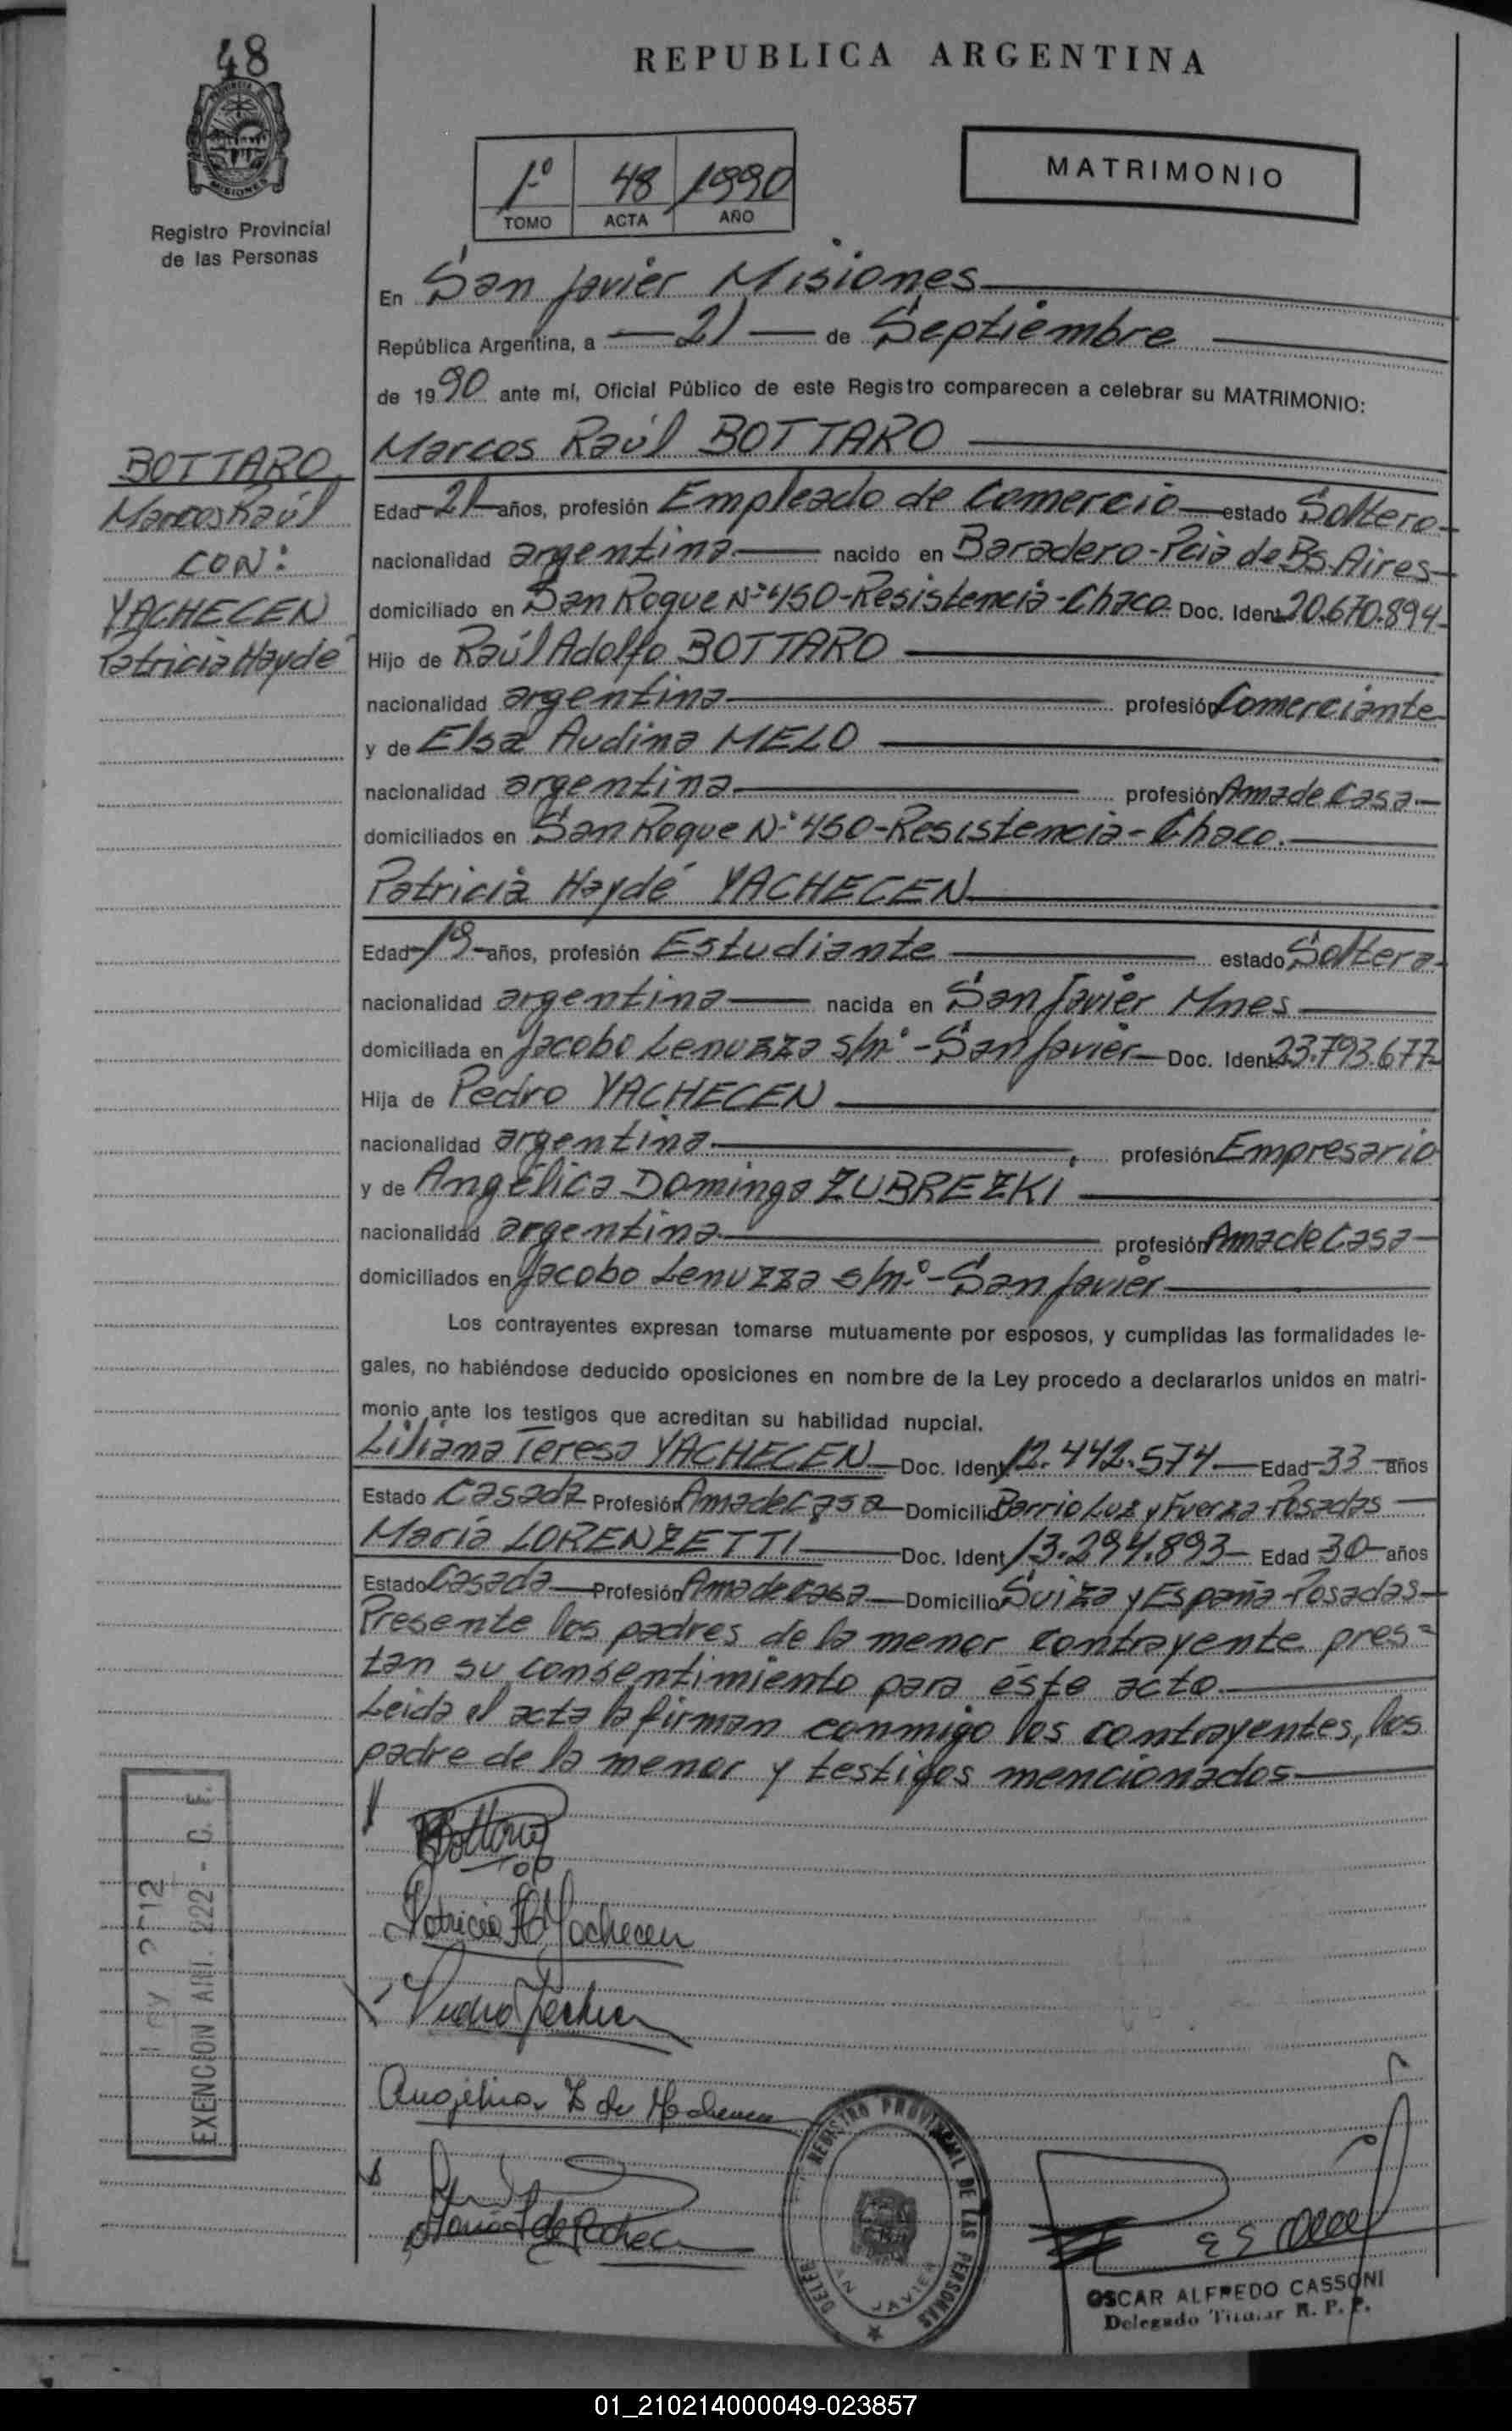 48
REPUBLICA ARGENTINA
PROVINCIA DE MISIONES
Registro Provincial
de las Personas
1º 48 1990
TOMO ACTA AÑO
MATRIMONIO
En San Javier Misiones
República Argentina, a 21 de Septiembre
de 1990 ante mí, Oficial Público de este Registro comparecen a celebrar su MATRIMONIO:
BOTTARO
Marcos Raúl
CON:
YACHECEN
Patricia Haydé
Marcos Raúl BOTTARO
Edad 21 años, profesión Empleado de Comercio estado Soltero
nacionalidad argentina nacido en Baradero - Pcia de Bs. Aires
domiciliado en San Roque Nº 450 - Resistencia - Chaco Doc. Ident. 20.670.894
Hijo de Raúl Adolfo BOTTARO
nacionalidad argentina profesión Comerciante
y de Elsa Audina MELO
nacionalidad argentina profesión Ama de Casa
domiciliados en San Roque Nº 450 - Resistencia - Chaco.
Patricia Haydé YACHECEN
Edad 19 años, profesión Estudiante estado Soltera
nacionalidad argentina nacida en San Javier Mnes
domiciliada en Jacobo Lenuzza s/nº - San Javier Doc. Ident. 23.793.677
Hija de Pedro YACHECEN
nacionalidad argentina profesión Empresario
y de Angélica Dominga ZUBREZKI
nacionalidad argentina profesión Ama de Casa
domiciliados en Jacobo Lenuzza s/nº - San Javier
Los contrayentes expresan tomarse mutuamente por esposos, y cumplidas las formalidades le-
gales, no habiéndose deducido oposiciones en nombre de la Ley procedo a declararlos unidos en matri-
monio ante los testigos que acreditan su habilidad nupcial.
Liliana Teresa YACHECEN Doc. Ident. 12.442.574 Edad 33 años
Estado Casada Profesión Ama de Casa Domicilio Barrio Luz y Fuerza - Posadas
María LORENZETTI Doc. Ident. 13.294.893 Edad 30 años
Estado Casada Profesión Ama de casa Domicilio Suiza y España - Posadas
Presente los padres de la menor contrayente pres=
tan su consentimiento para éste acto.
Leida el acta la firman conmigo los contrayentes, los
padre de la menor y testigos mencionados
Bottaro
Patricia H Yachecen
Pedro Yachecen
Angélica Z de Yachecen
EXENCION ART. 222 - C. F.
2012
REGISTRO PROVINCIAL DE LAS PERSONAS
SAN JAVIER
OSCAR ALFREDO CASSONI
Delegado Titular R. P. P.
01_210214000049-023857